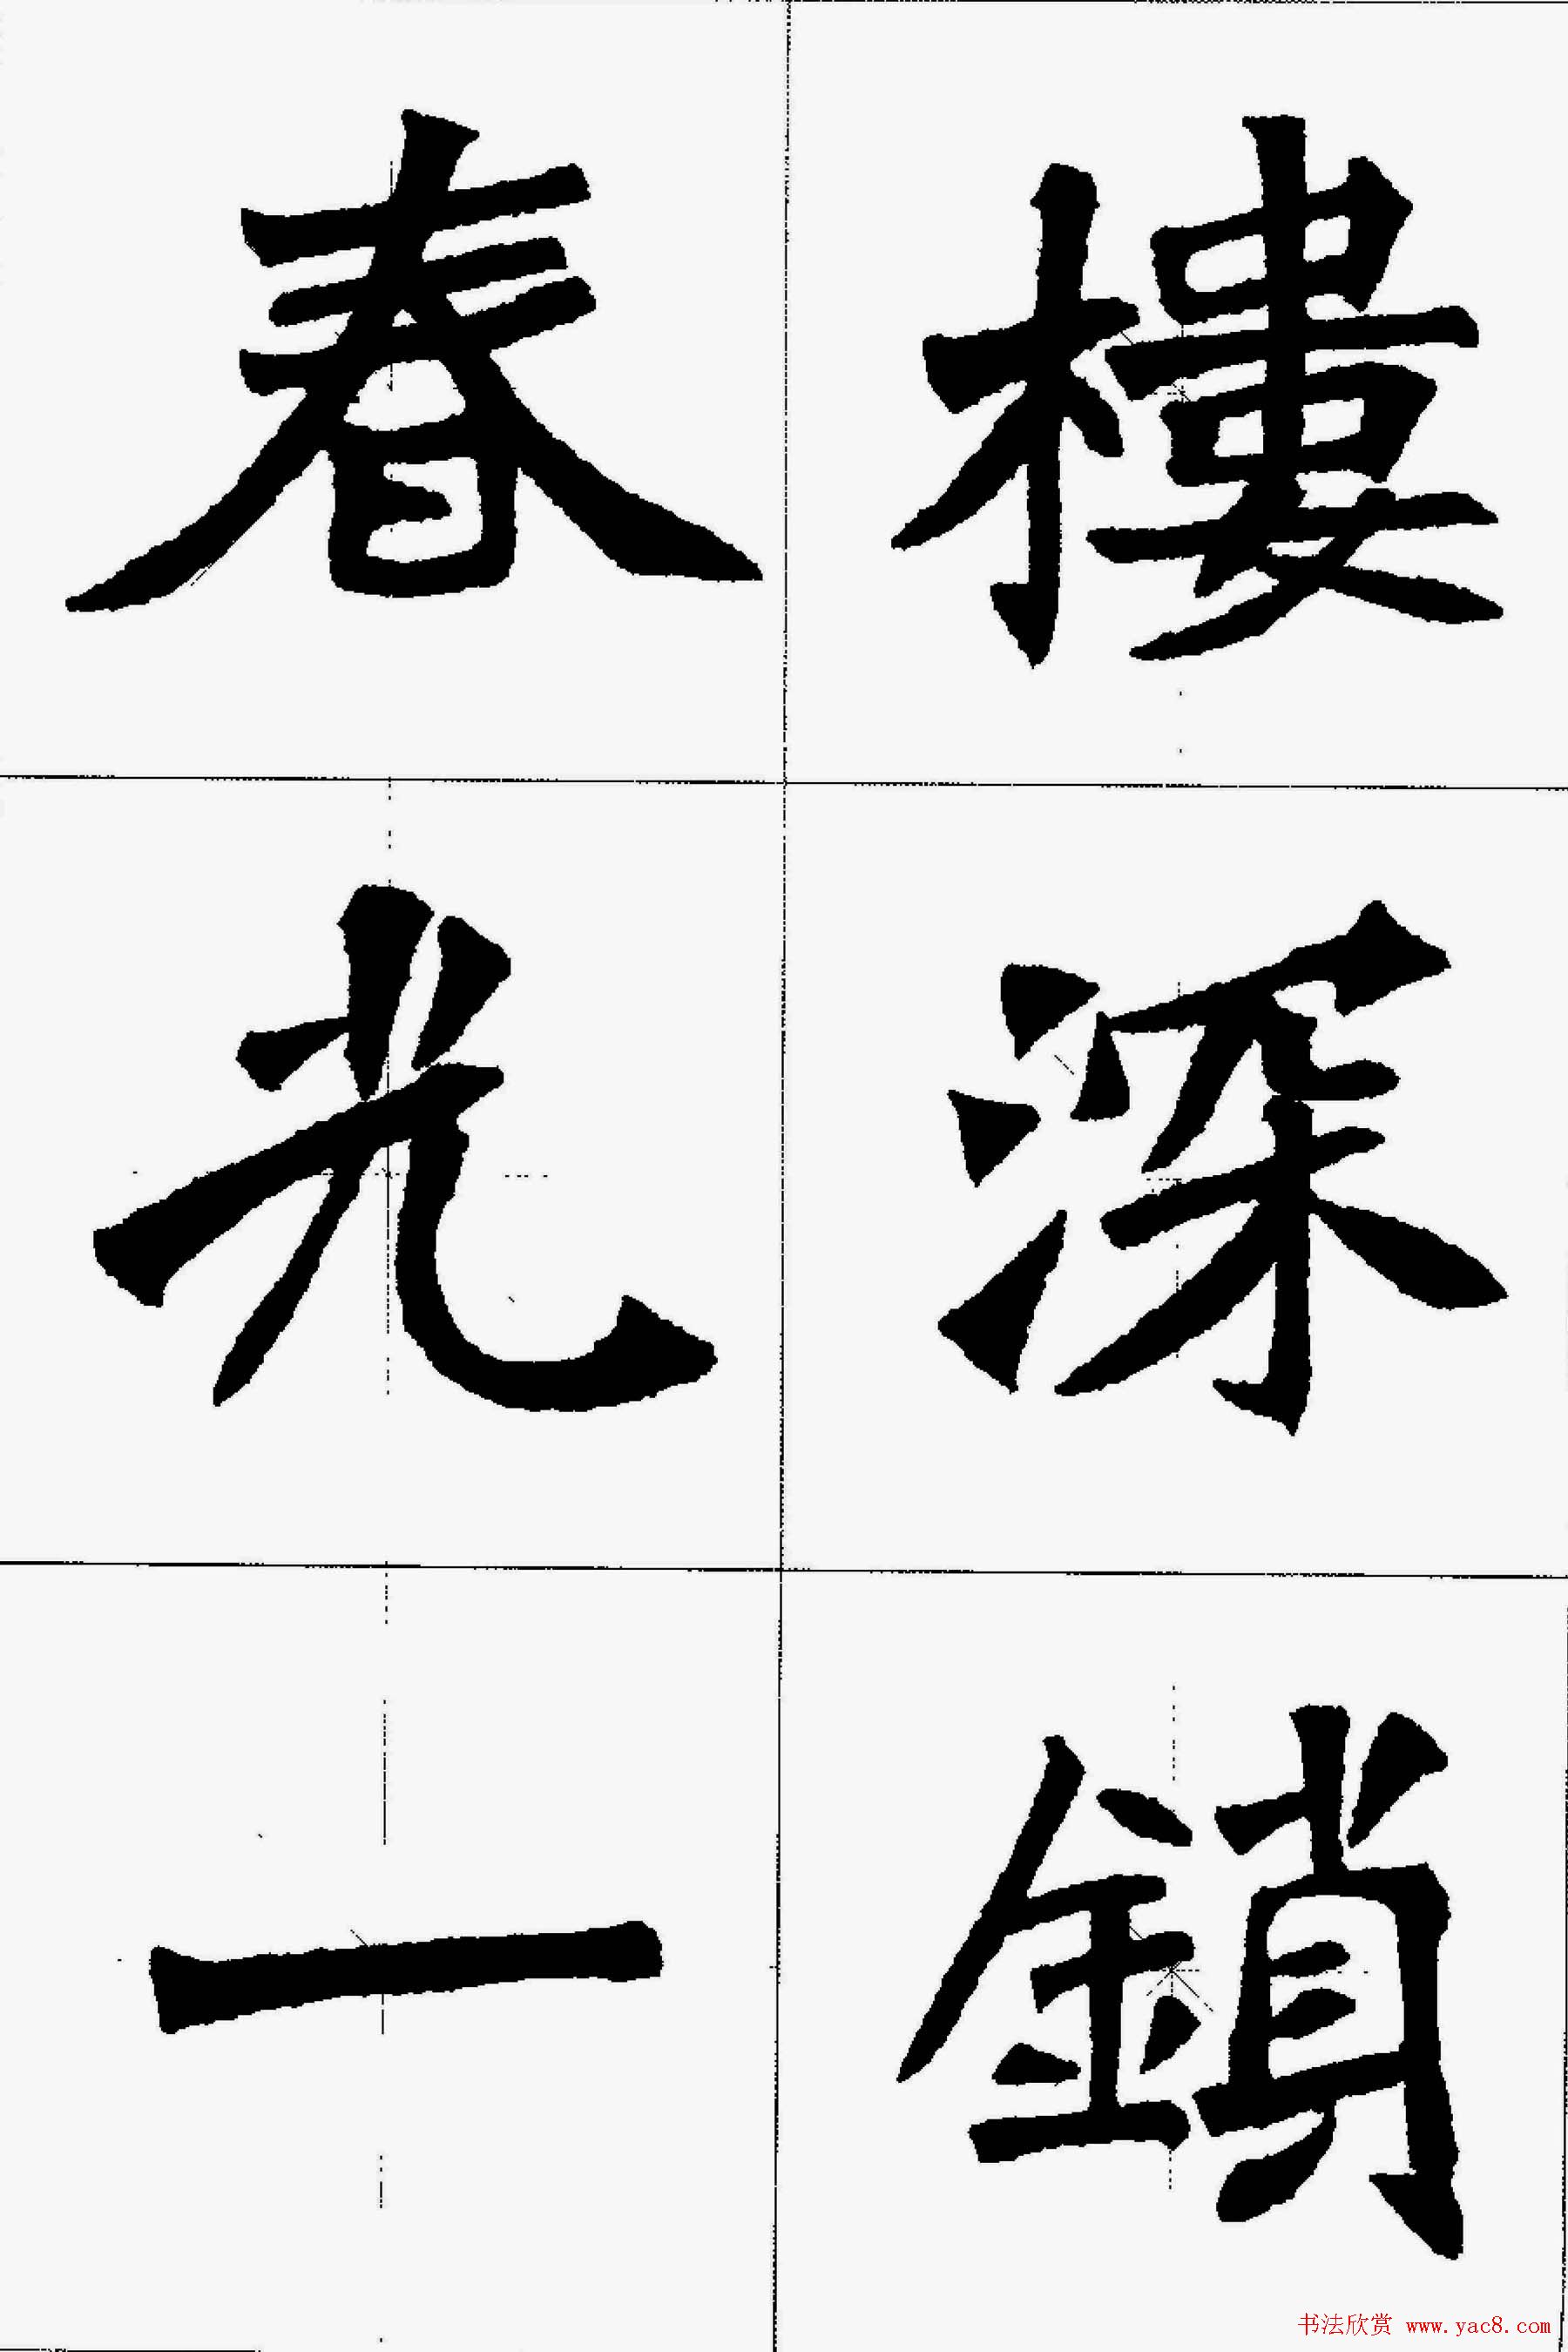 樓深鎖
春光一
书法欣赏 www.yac8.com